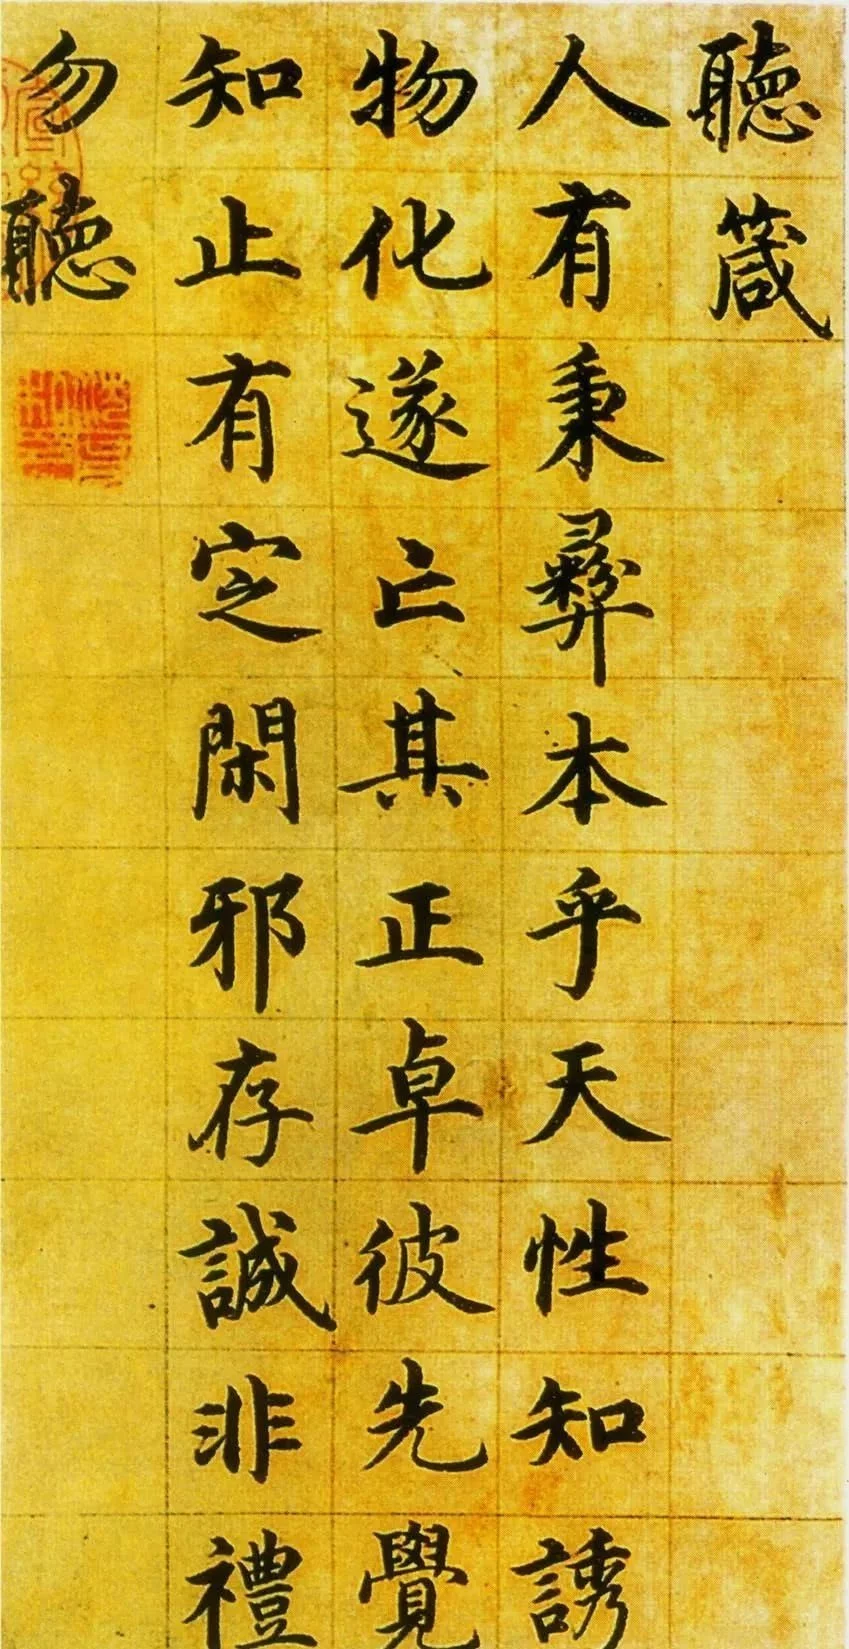 聽箴
人有秉彝本乎天性知誘
物化遂亡其正卓彼先覺
知止有定閑邪存誠非禮
勿聽